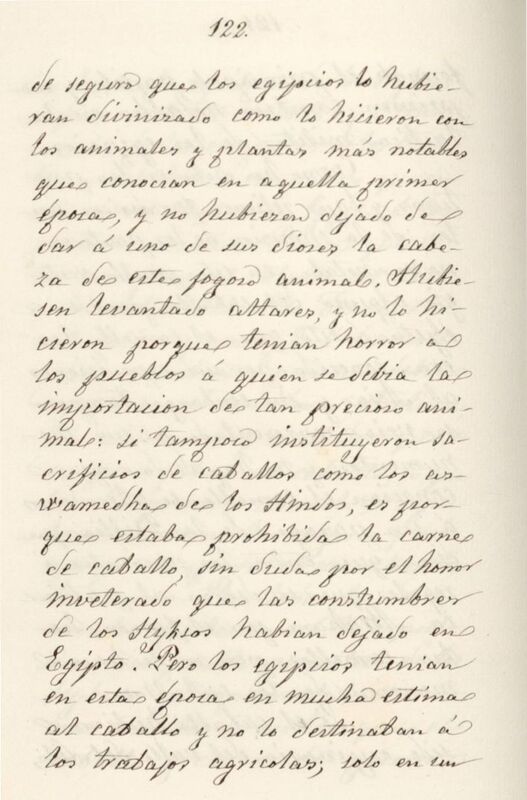 122.
de seguro que los egipcios lo hubie-
ran divinizado como lo hicieron con
los animales y plantas más notables
que conocian en aquella primer
época, y no hubiesen dejado de
dar á uno de sus dioses la cabe-
za de este fogoso animal. Hubie-
sen levantado altares, y no lo hi-
cieron porque tenian horror á
los pueblos á quien se debia la
importacion de tan precioso ani-
mal: si tampoco instituyeron sa-
crificios de caballos como los as-
wamedha de los Hindos, es por-
que estaba prohibida la carne
de caballo, sin duda por el honor
inveterado que las constumbres
de los Hyksos habian dejado en
Egipto. Pero los egipcios tenian
en esta época en mucha estima
al caballo y no lo destinaban á
los trabajos agricolas; solo en un